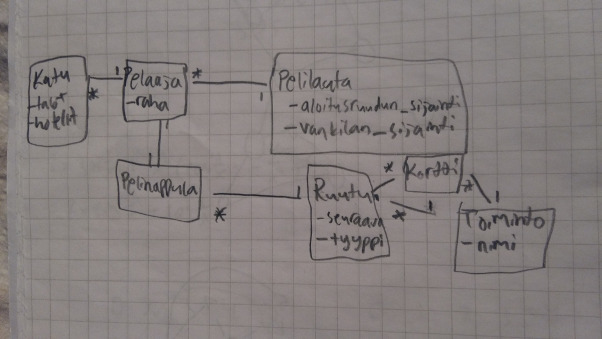 Katu
-talot
-hotellit
1
*
Pelaaja
-raha
*
1
Pelilauta
-aloitusruudun_sijainti
-vankilan_sijainti
1
1
Pelinappula
*
1
Ruutu
-seuraava
-tyyppi
*
1
Kortti
*
1
*
1
Toiminto
-nimi